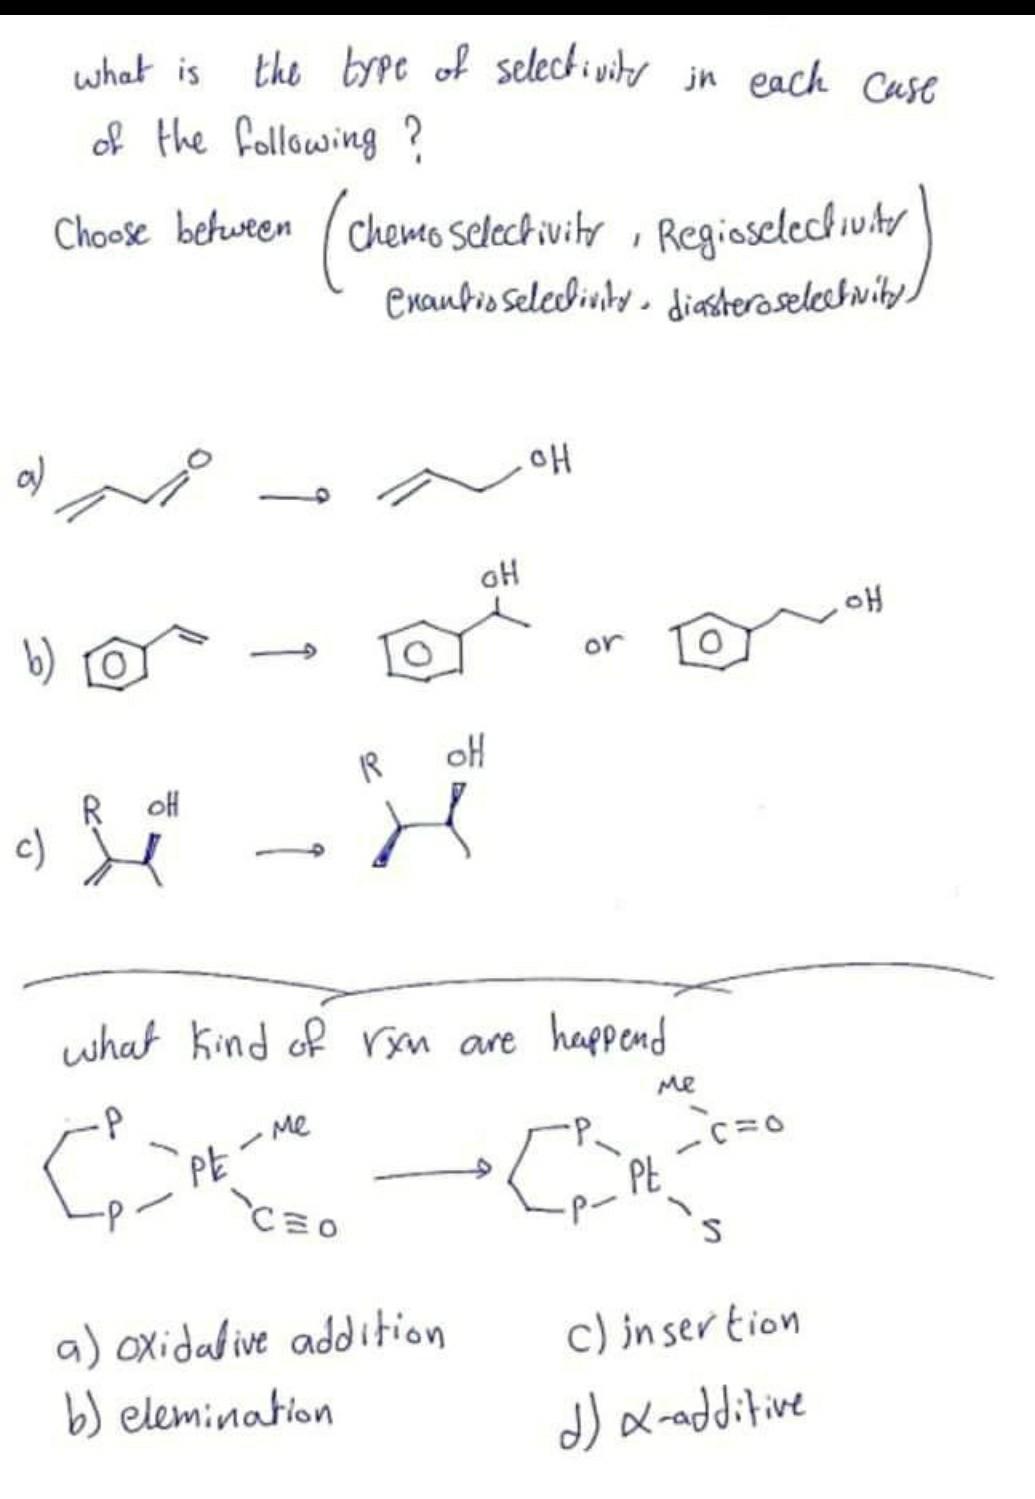 what is the type of selectivity in each case
of the following ?
Choose between (chemoselectivity , Regioselectivity
enantioselectivity , diasteroselectivity)
a) O OH
b) OH or OH
c) R OH R OH
what kind of rxn are happend
P P Pt Me C≡O P P Pt Me C=O S
a) oxidative addition c) insertion
b) elemination d) α-additive